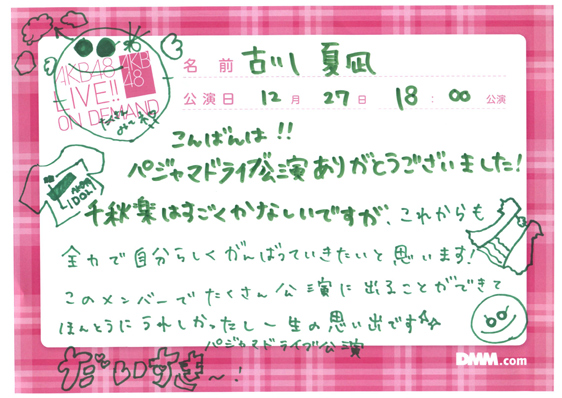 AKB48
LIVE!!
ON DEMAND
AKB
48
名前 古川 夏凪
公演日 12月 27日 18:00 公演
こんばんは!!
パジャマドライブ公演ありがとうございました!
千秋楽はすごくかなしいですが、これからも
全力で自分らしくがんばっていきたいと思います!
このメンバーでたくさん公演に出ることができて
ほんとうにうれしかったし一生の思い出です☆☆
パジャマドライブ公演
だいすき〜!
DMM.com